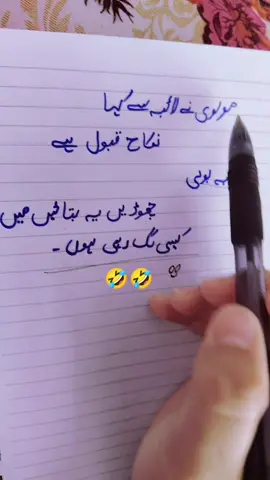 مولوی نے لائبہ سے کہا
نکاح قبول ہے
بولی
چھوڑیں یہ بتائیں میں
کیسی لگ رہی ہوں -
🤣🤣